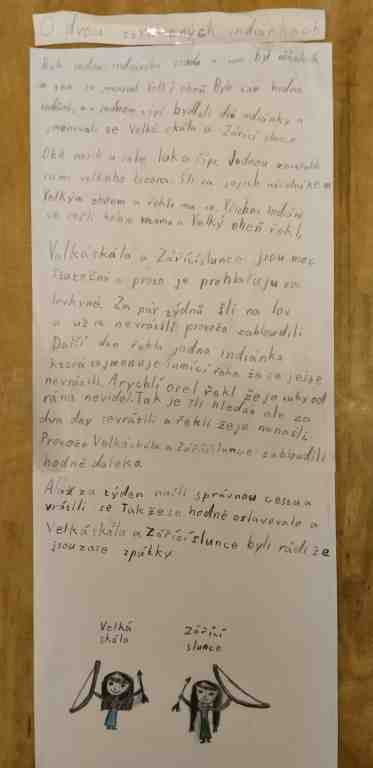 O dvou ztracených indiánkách
Byla jedna indiánská osada a tam byl náčelník
a ten se jmenoval Velký oheň. Bylo tam hodně
indiánů, a v jednom típí bydleli dvě indiánky a
jmenovali se Velká skála a Zářící slunce.
Obě nosili u sebe luk a šípy. Jednou
sami velkého bizona. Šli za jejich náčelníkem
Velkým ohněm a řekli mu to. Všichni indiáni
se sešli kolem a Velký oheň řekl,
Velká skála a Zářící slunce jsou moc
statečné a proto je prohlašuju za
lovkyně. Za pár týdnů šli na lov
a už se nevrátili protože zabloudili
Další den řekla jedna indiánka
která se jmenuje šumící řeka že se ještě
nevrátili. A rychlí orel řekl že je taky od
rána neviděl. Tak je šli hledat ale za
dva dny se vrátili a řekli že je nenašli.
Protože Velká skála a Zářící slunce zabloudili
hodně daleko.
Až za týden našli správnou cestu a
vrátili se. Takže se hodně oslavovalo a
Velká skála a Zářící slunce byli rádi že
jsou zase zpátky
Velká
skála
Zářící
slunce